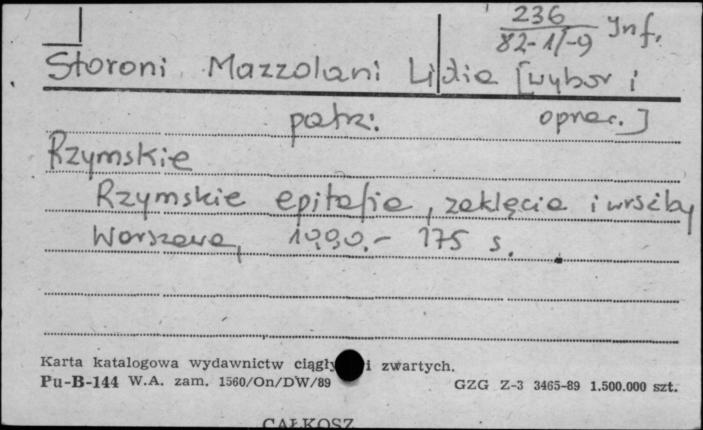 236
82-1/-9 Inf.
Storoni Mazzolani Lidia [wybor i
patrz: oprac.]
Rzymskie
Rzymskie epitafia, zaklęcia i wróżby
Warszawa, 1990.- 175 s.
Karta katalogowa wydawnictw i zwartych.
Pu-B-144 W.A. zam. 1560/On/DW/89 GZG Z-3 3465-89 1.500.000 szt.
CAŁKOSZ